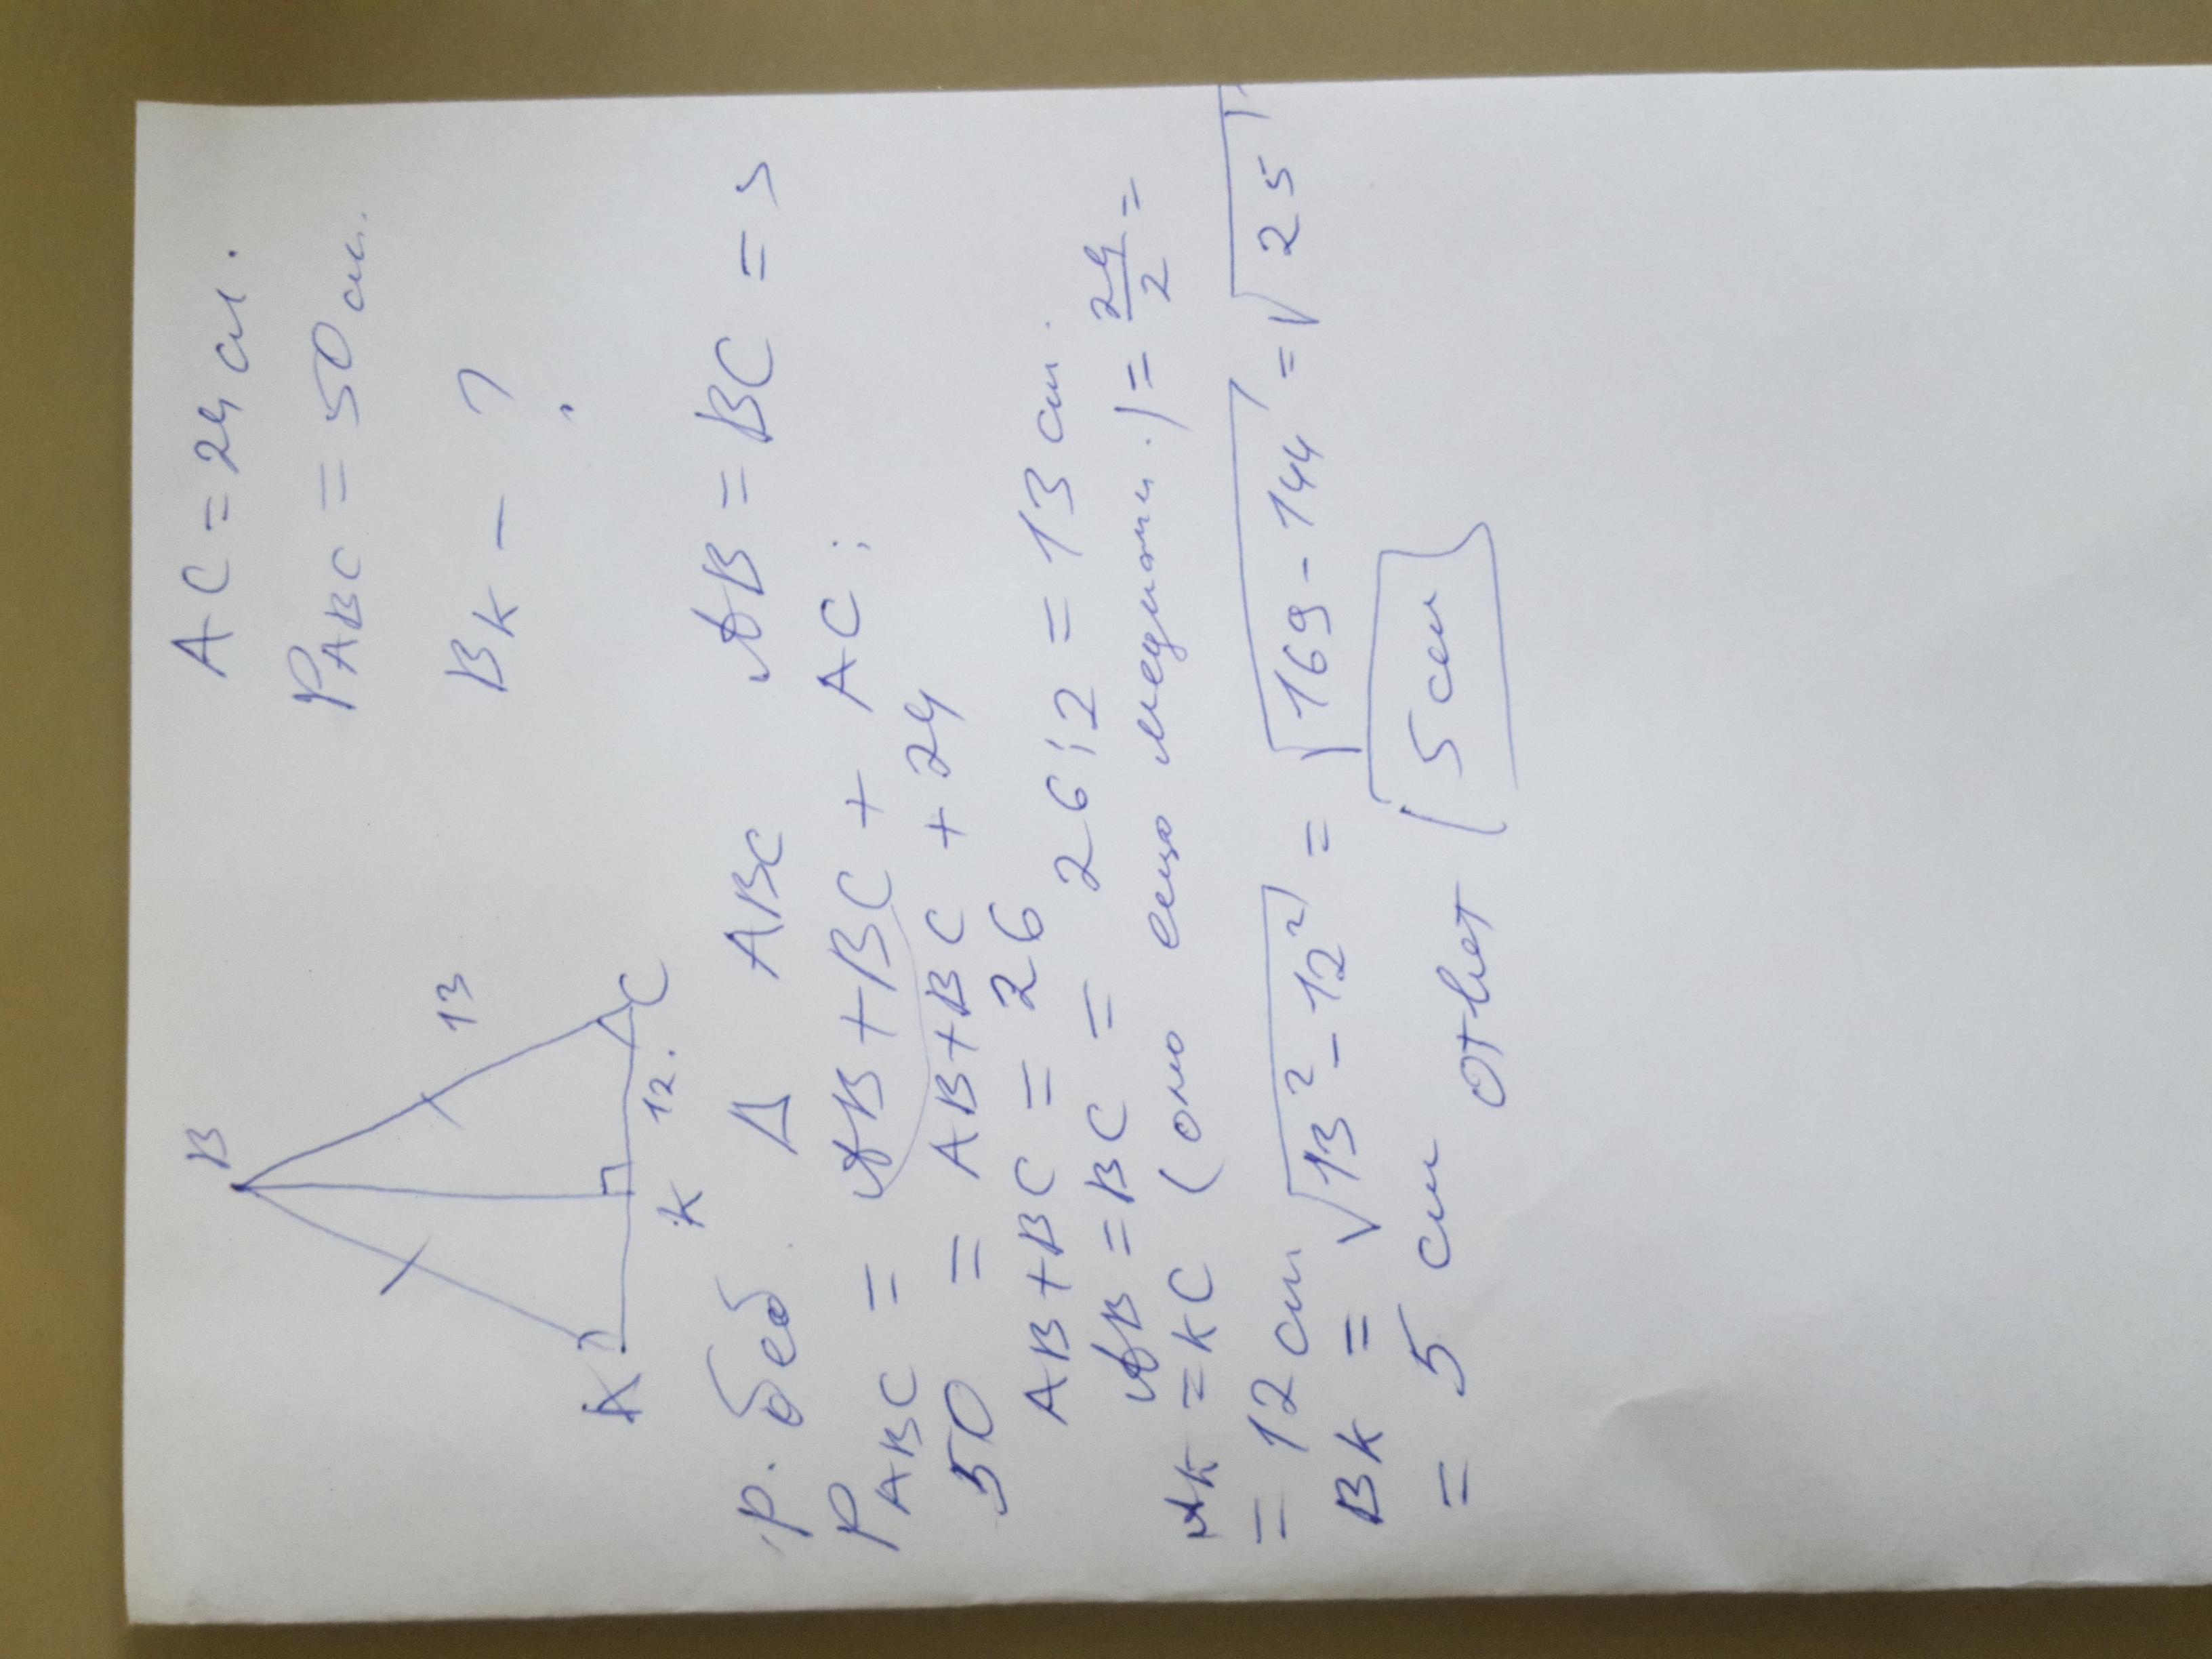 B
13
A
K
12.
C
AC = 24 см.
PABC = 50 см.
BK - ?
р. бед. Δ ABC AB = BC =>
PABC = AB + BC + AC:
50 = AB + BC + 24
AB + BC = 26
AB = BC = 26 : 2 = 13 см.
AK = KC (оно еще медиан.) = 24/2 =
= 12 см
BK = √13² - 12² = √169 - 144 = √25 =
= 5 см Ответ 5 см